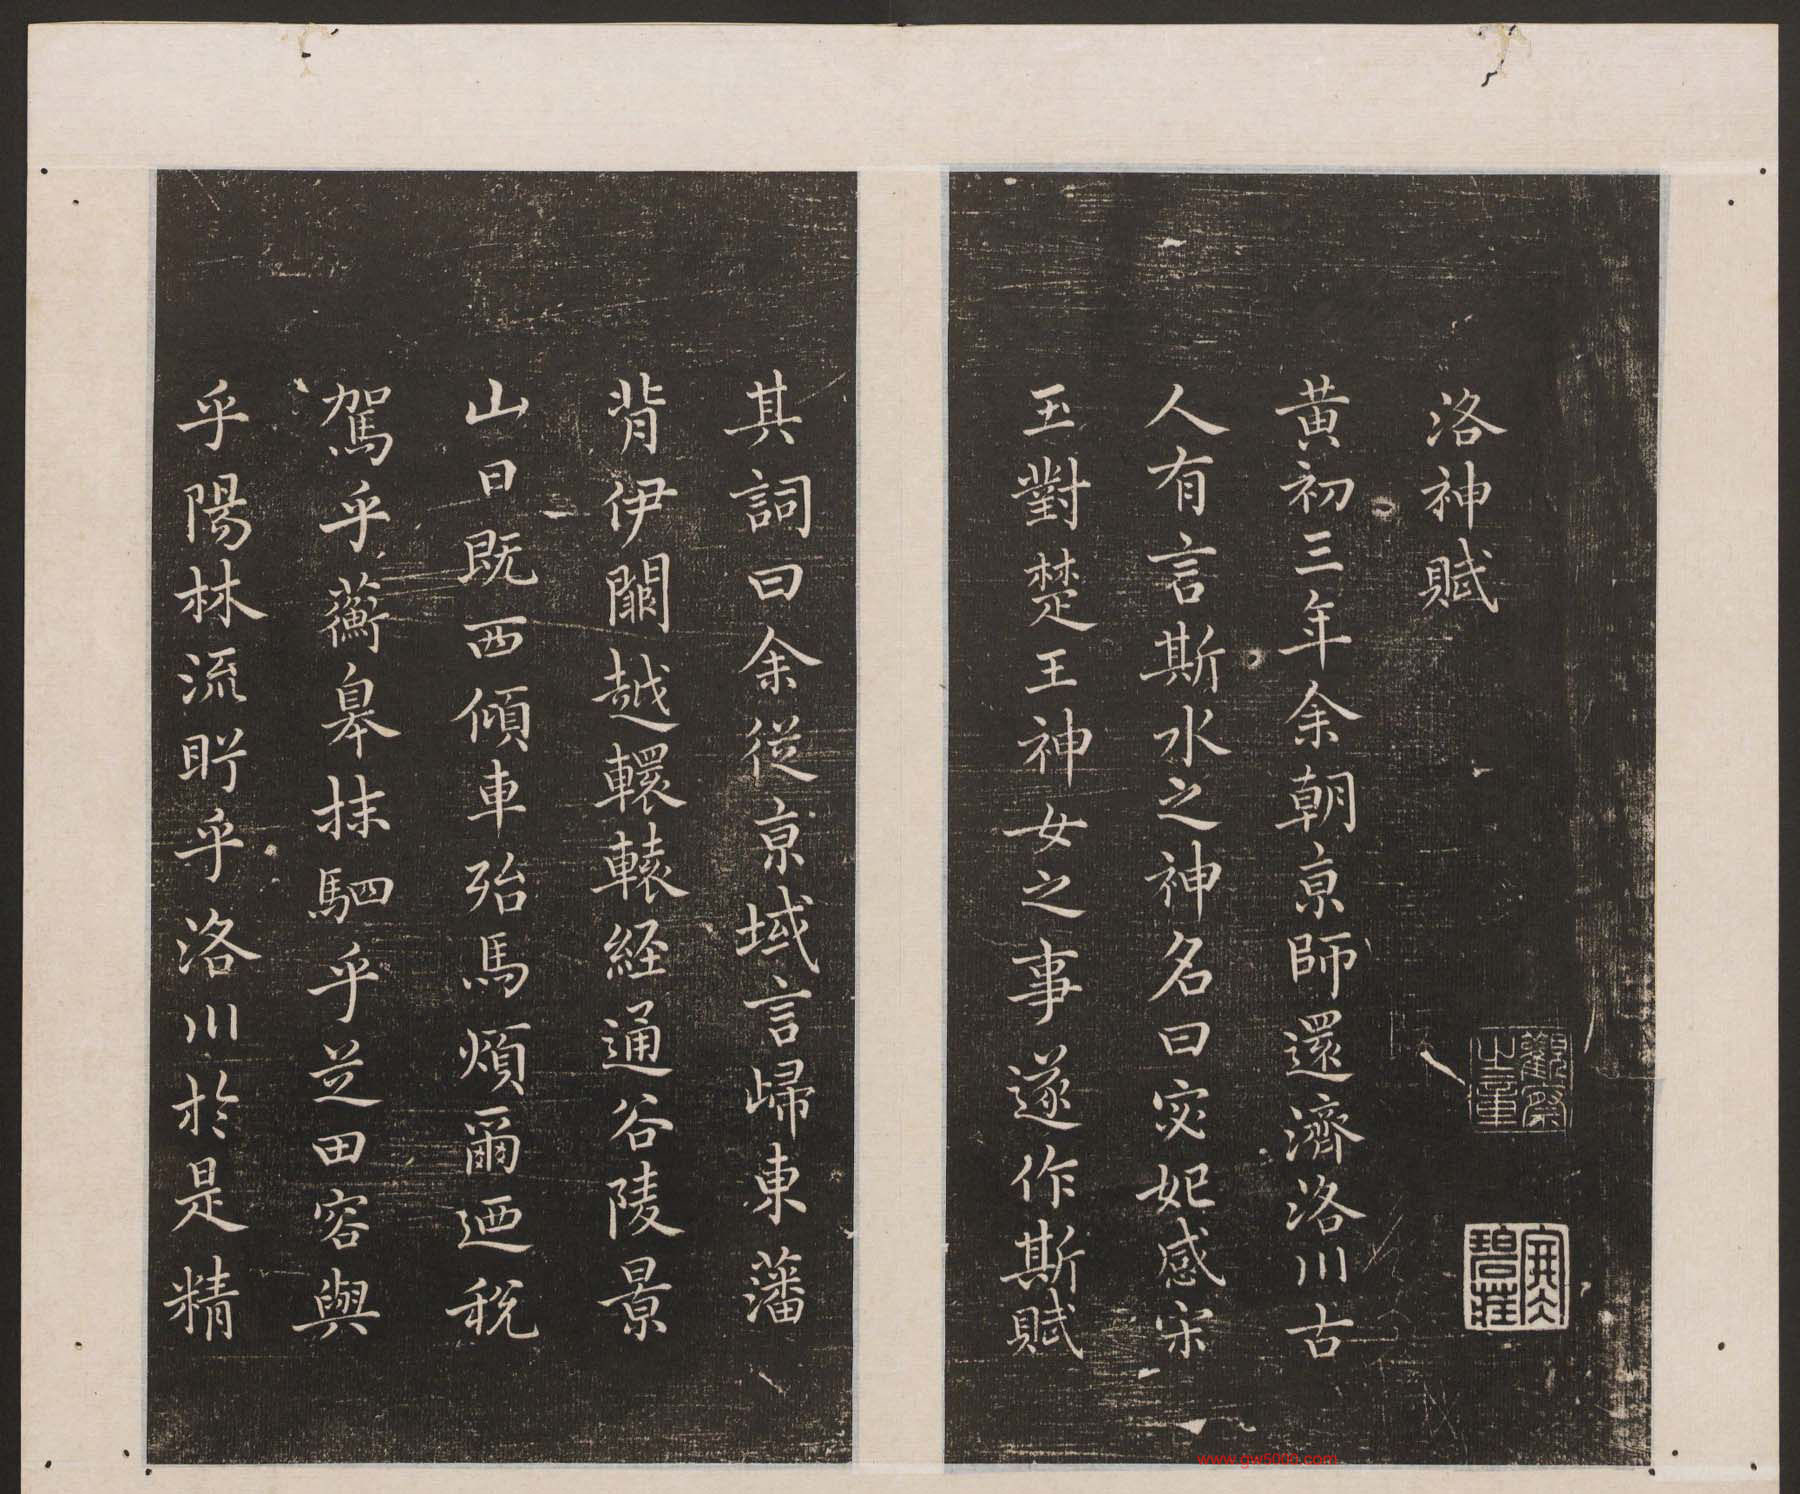 洛神賦
黃初三年余朝京師還濟洛川古
人有言斯水之神名曰宓妃感宋
玉對楚王神女之事遂作斯賦
其詞曰余從京域言歸東藩
背伊闕越轘轅經通谷陵景
山日既西傾車殆馬煩爾迺稅
駕乎蘅皋抹駟乎芝田容與
乎陽林流眄乎洛川於是精
碧莊
www.gw5000.com